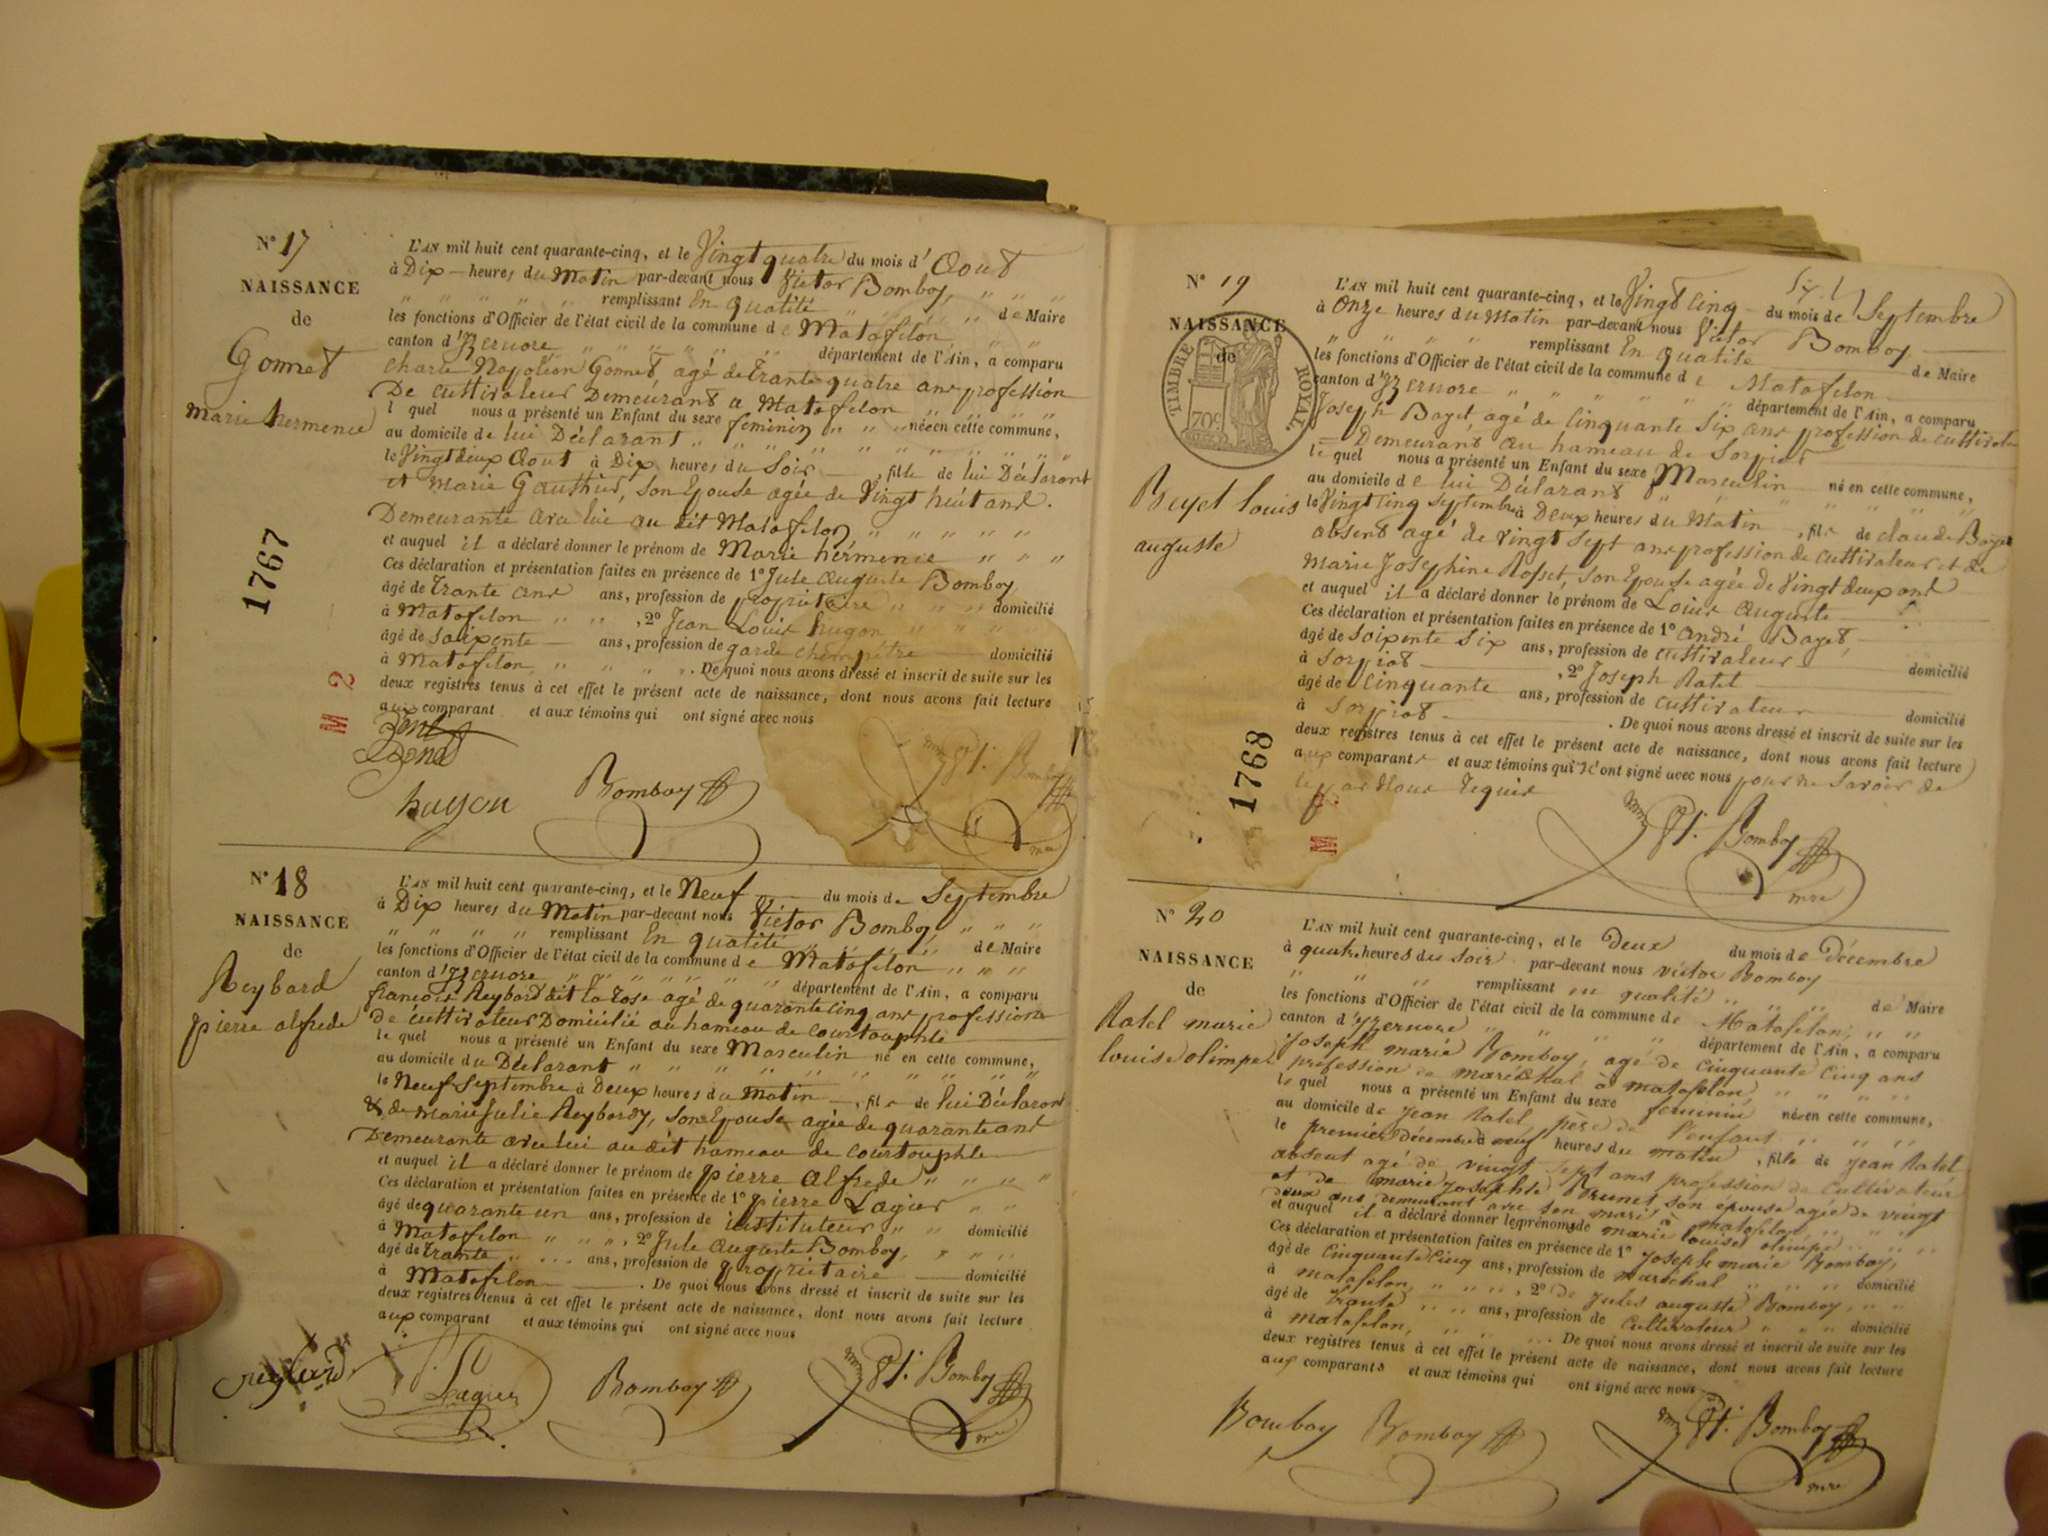 N° 17
NAISSANCE
de
Gonnet
marie hermence
1767
M 2
L'AN mil huit cent quarante-cinq, et le Vingt quatre du mois d' Aout
à Dix heures du Matin par-devant nous Victor Bomboy
remplissant En qualité de Maire
les fonctions d'Officier de l'état civil de la commune de Matafelon
canton d'Izernore département de l'Ain, a comparu
Charle Napoléon Gonnet agé de trante quatre ans profession
De cultivateur Demeurant a Matafelon
lequel nous a présenté un Enfant du sexe feminin née en cette commune,
au domicile de lui Déclarant
le Vingt deux Aout à Dix heures du Soir, fille de lui Déclarant
et Marie Gauthier, son Epouse agée de Vingt huit ans.
Demeurante avec lui au dit Matafelon
et auquel il a déclaré donner le prénom de Marie hermence
Ces déclaration et présentation faites en présence de 1° Jule Auguste Bomboy
âgé de trante ans ans, profession de propriétaire domicilié
à Matafelon, 2° Jean Louis hugon
âgé de soixente ans, profession de garde champetre domicilié
à Matafelon. De quoi nous avons dressé et inscrit de suite sur les
deux registres tenus à cet effet le présent acte de naissance, dont nous avons fait lecture
aux comparant et aux témoins qui ont signé avec nous
hugon Bomboy Vt. Bomboy
mre
N° 18
NAISSANCE
de
Reybard
pierre alfrede
L'AN mil huit cent quarante-cinq, et le Neuf du mois de Septembre
à Dix heures du Matin par-devant nous Victor Bomboy
remplissant En qualité de Maire
les fonctions d'Officier de l'état civil de la commune de Matafelon
canton d'Izernore département de l'Ain, a comparu
françois Reybard dit la rose agé de quarante cinq ans profession
de cultivateur Domicilié au hameau de courtouphle
lequel nous a présenté un Enfant du sexe Masculin né en cette commune,
au domicile du Déclarant
le Neuf Septembre à Deux heures du matin, fils de lui Déclarant
& de Marie Julie Reybard, son Epouse agée de quarante ans
Demeurante avec lui au dit hameau de courtouphle
et auquel il a déclaré donner le prénom de pierre alfrede
Ces déclaration et présentation faites en présence de 1° pierre Lagier
âgé de quarante un ans, profession de instituteur domicilié
à Matafelon, 2° Jule Auguste Bomboy,
âgé de trante ans, profession de propriétaire domicilié
à Matafelon. De quoi nous avons dressé et inscrit de suite sur les
deux registres tenus à cet effet le présent acte de naissance, dont nous avons fait lecture
aux comparant et aux témoins qui ont signé avec nous
reybard P. Lagier Bomboy Vt. Bomboy
mre
N° 19
NAISSANCE
de
TIMBRE ROYAL
70c
Beyet louis
auguste
1768
M 2
L'AN mil huit cent quarante-cinq, et le Vingt Cinq du mois de Septembre
à Onze heures du Matin par-devant nous Victor Bomboy
remplissant En qualité de Maire
les fonctions d'Officier de l'état civil de la commune de Matafelon
canton d'Izernore département de l'Ain, a comparu
Joseph Bayet, agé de Cinquante Six ans profession de cultivateur
Demeurant au hameau de Sorpiat
lequel nous a présenté un Enfant du sexe Masculin né en cette commune,
au domicile de lui Déclarant
le Vingt Cinq Septembre à Deux heures du Matin, fils de claude Bayet
absent agé de vingt Sept ans profession de cultivateur et de
Marie Josephine Rosset, son Epouse agée de Vingt deux ans
et auquel il a déclaré donner le prénom de Louis Auguste
Ces déclaration et présentation faites en présence de 1° André Bayet,
âgé de Soixente Six ans, profession de cultivateur domicilié
à Sorpiat, 2° Joseph Ratel
âgé de Cinquante ans, profession de cultivateur domicilié
à Sorpiat. De quoi nous avons dressé et inscrit de suite sur les
deux registres tenus à cet effet le présent acte de naissance, dont nous avons fait lecture
aux comparants et aux témoins qui n'ont signé avec nous pour ne savoir de
le par Nous requis
Vt. Bomboy
mre
N° 20
NAISSANCE
de
Ratel marie
louise olimpe
L'AN mil huit cent quarante-cinq, et le Deux du mois de Décembre
à quatre heures du soir par-devant nous victor Bomboy
remplissant en qualité de Maire
les fonctions d'Officier de l'état civil de la commune de Matafelon
canton d'Izernore département de l'Ain, a comparu
Joseph marie Bomboy, agé de cinquante cinq ans
profession de maréchal à matafelon,
lequel nous a présenté un Enfant du sexe feminin née en cette commune,
au domicile de jean Ratel père de l'enfant
le premier décembre à neuf heures du matin, fille de jean Ratel
absent agé de vingt sept ans profession de cultivateur
et de marie josephte Brunet son épouse agée de vingt
deux ans demeurant avec son mari à matafelon
et auquel il a déclaré donner le prénom de marie louise olimpe
Ces déclaration et présentation faites en présence de 1° Joseph marie Bomboy,
âgé de cinquante cinq ans, profession de maréchal domicilié
à matafelon, 2° de Jules auguste Bomboy,
âgé de trante ans, profession de cultivateur domicilié
à matafelon. De quoi nous avons dressé et inscrit de suite sur les
deux registres tenus à cet effet le présent acte de naissance, dont nous avons fait lecture
aux comparants et aux témoins qui ont signé avec nous
Bomboy Bomboy Vt. Bomboy
mre